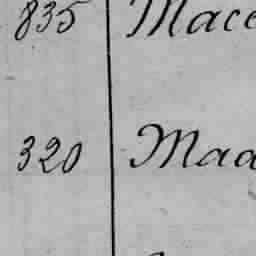 835 Mace
320 Maa